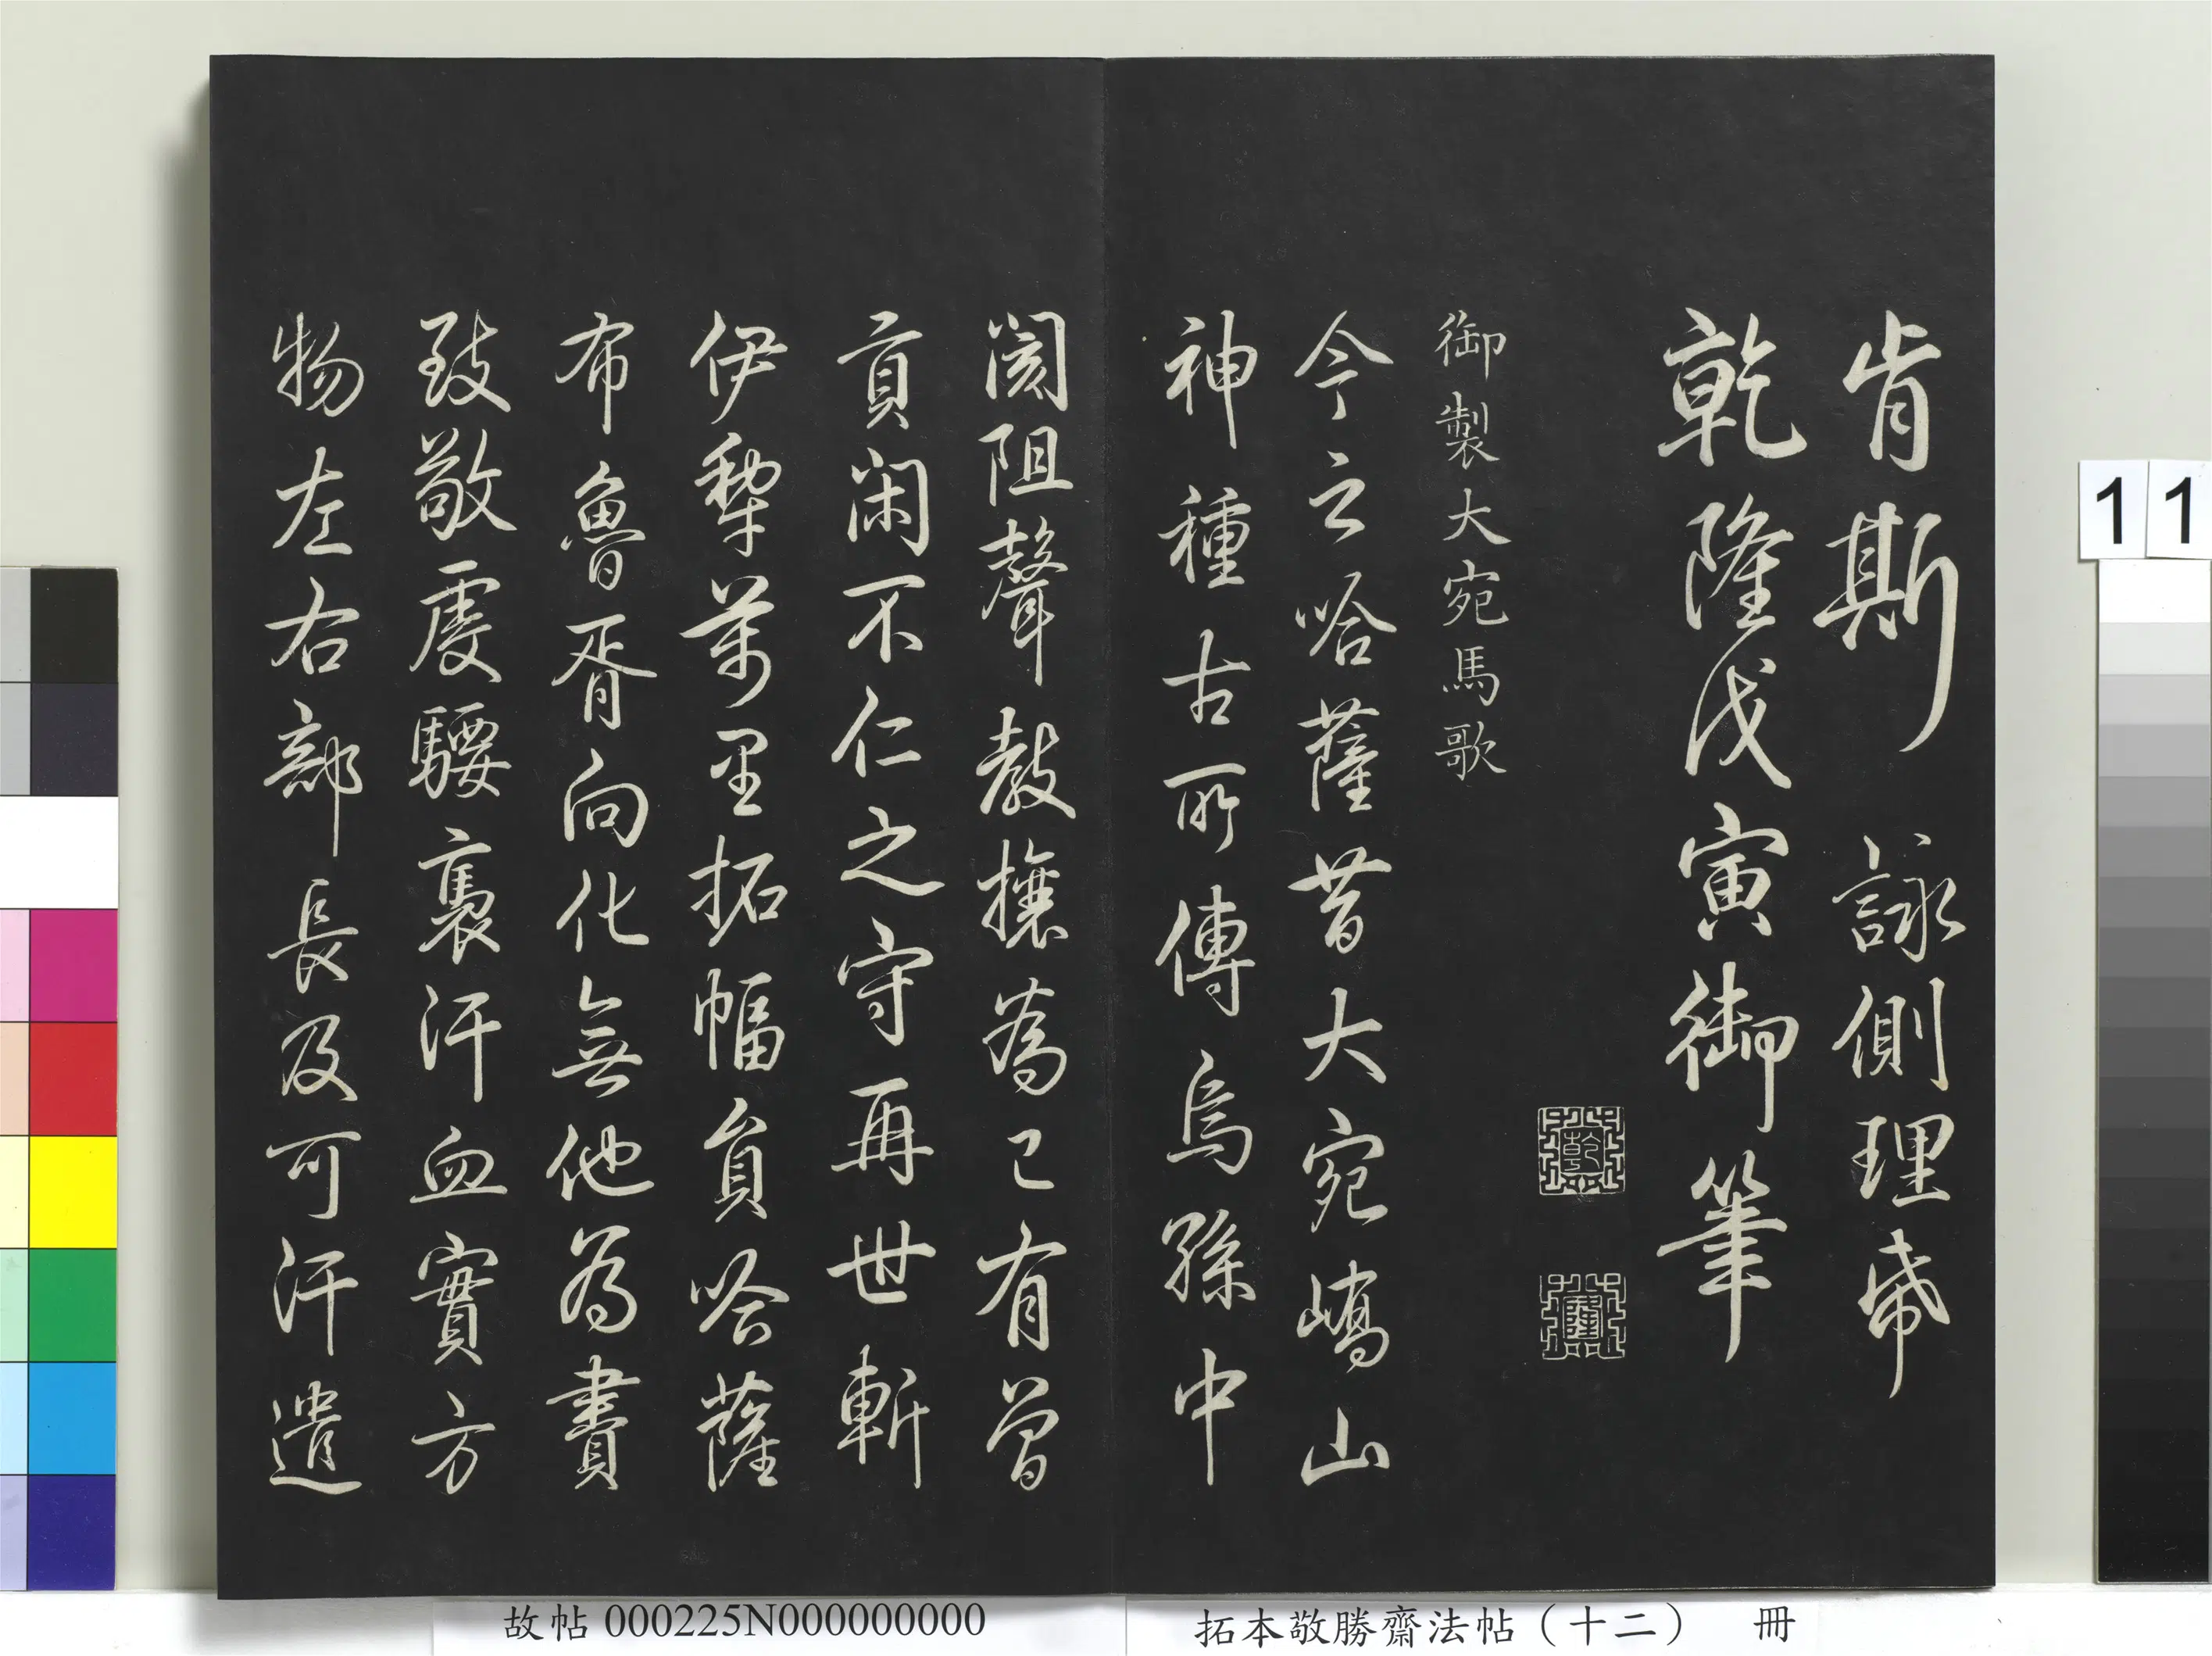 肯斯 詠側理帋
乾隆戊寅御筆
乾
隆
御製大宛馬歌
今之哈薩昔大宛嶠山
神種古所傳烏孫中
閡阻聲教攘為己有曾
貢閑不仁之守再世斬
伊犂萬里拓幅員哈薩
布魯胥向化無他為贄
致敬虔騕褭汗血實方
物左右部長及可汗遣
11
故帖000225N000000000
拓本敬勝齋法帖（十二） 冊